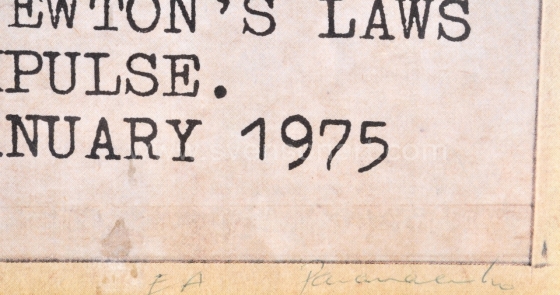 EWTON'S LAWS
PULSE.
ANUARY 1975
EA